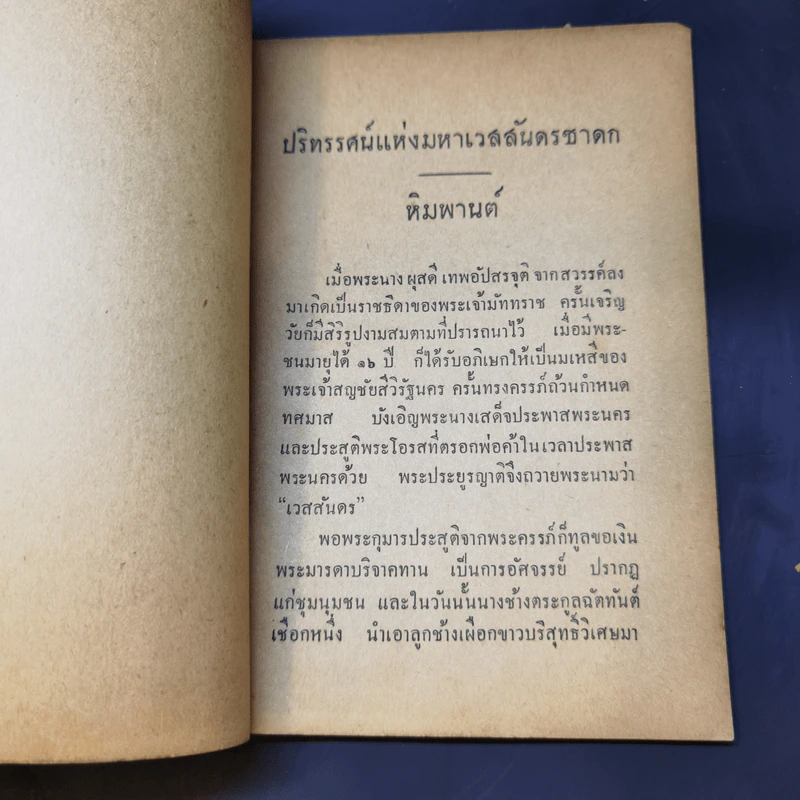 ปริทรรศน์แห่งมหาเวสสันดรชาดก
หิมพานต์
เมื่อพระนาง ผุสดี เทพอัปสรจุติ จากสวรรค์ลง
มาเกิดเป็นราชธิดาของพระเจ้ามัททราช ครั้นเจริญ
วัยก็มีสิริรูปงามสมตามที่ปรารถนาไว้ เมื่อมีพระ-
ชนมายุได้ ๑๖ ปี ก็ได้รับอภิเษกให้เป็นมเหสีของ
พระเจ้าสญชัยสีวิรัฐนคร ครั้นทรงครรภ์ถ้วนกำหนด
ทศมาส บังเอิญพระนางเสด็จประพาสพระนคร
และประสูติพระโอรสที่ตรอกพ่อค้าในเวลาประพาส
พระนครด้วย พระประยูรญาติจึงถวายพระนามว่า
“เวสสันดร”
พอพระกุมารประสูติจากพระครรภ์ก็ทูลขอเงิน
พระมารดาบริจาคทาน เป็นการอัศจรรย์ ปรากฏ
แก่ชุมนุมชน และในวันนั้นนางช้างตระกูลฉัตทันต์
เชือกหนึ่ง นำเอาลูกช้างเผือกขาวบริสุทธิ์วิเศษมา